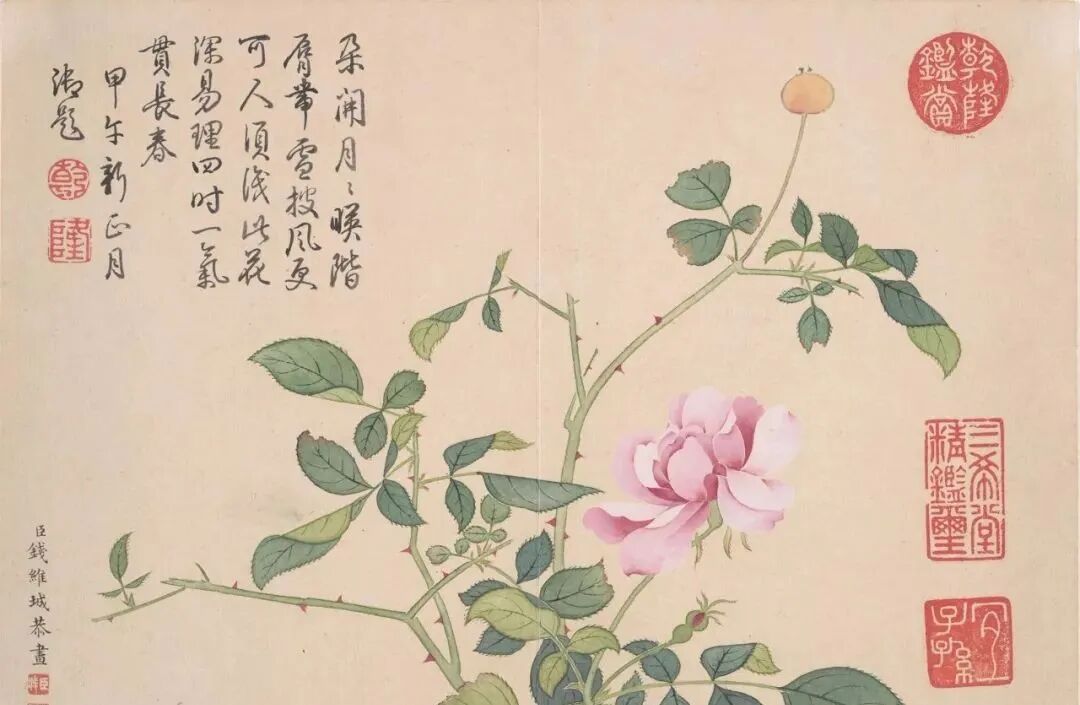 朶開月〻暎階
脣帶雪披風更
可人須識此花
深易理四時一氣
貫長春
甲午新正月
御題
乾
隆
乾隆鑑賞
三希堂精鑑璽
宜子孫
臣錢維城恭畫